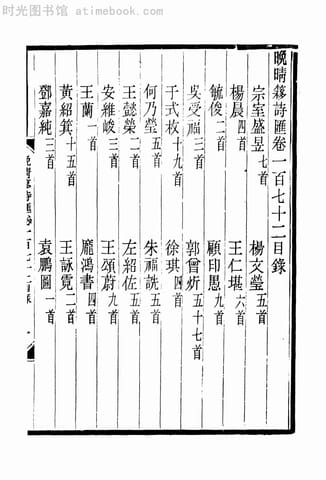 时光图书馆 - atimebook.com
晚晴簃詩匯卷一百七十二目錄
宗室盛昱七首 楊文瑩五首
楊晨四首 王仁堪六首
毓俊二首 顧印愚九首
吳受福三首 郭曾炘五十七首
于式枚十九首 徐琪四首
何乃瑩五首 朱福詵五首
王懿榮二首 左紹佐五首
安維峻三首 王頌蔚九首
王蘭一首 龐鴻書四首
黃紹箕十五首 王詠霓二首
鄧嘉純三首 袁鵬圖一首
晚晴簃詩匯卷一百七十二目錄 一